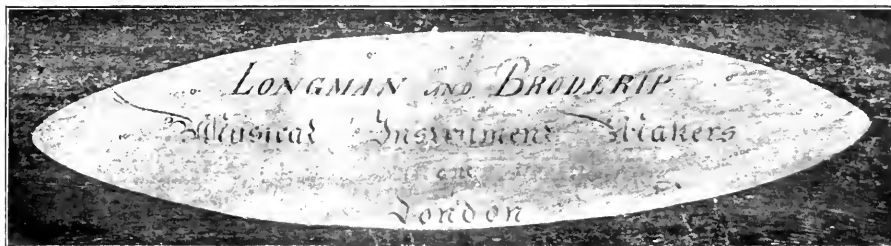 LONGMAN AND BRODERIP
Musical Instrument Makers
London